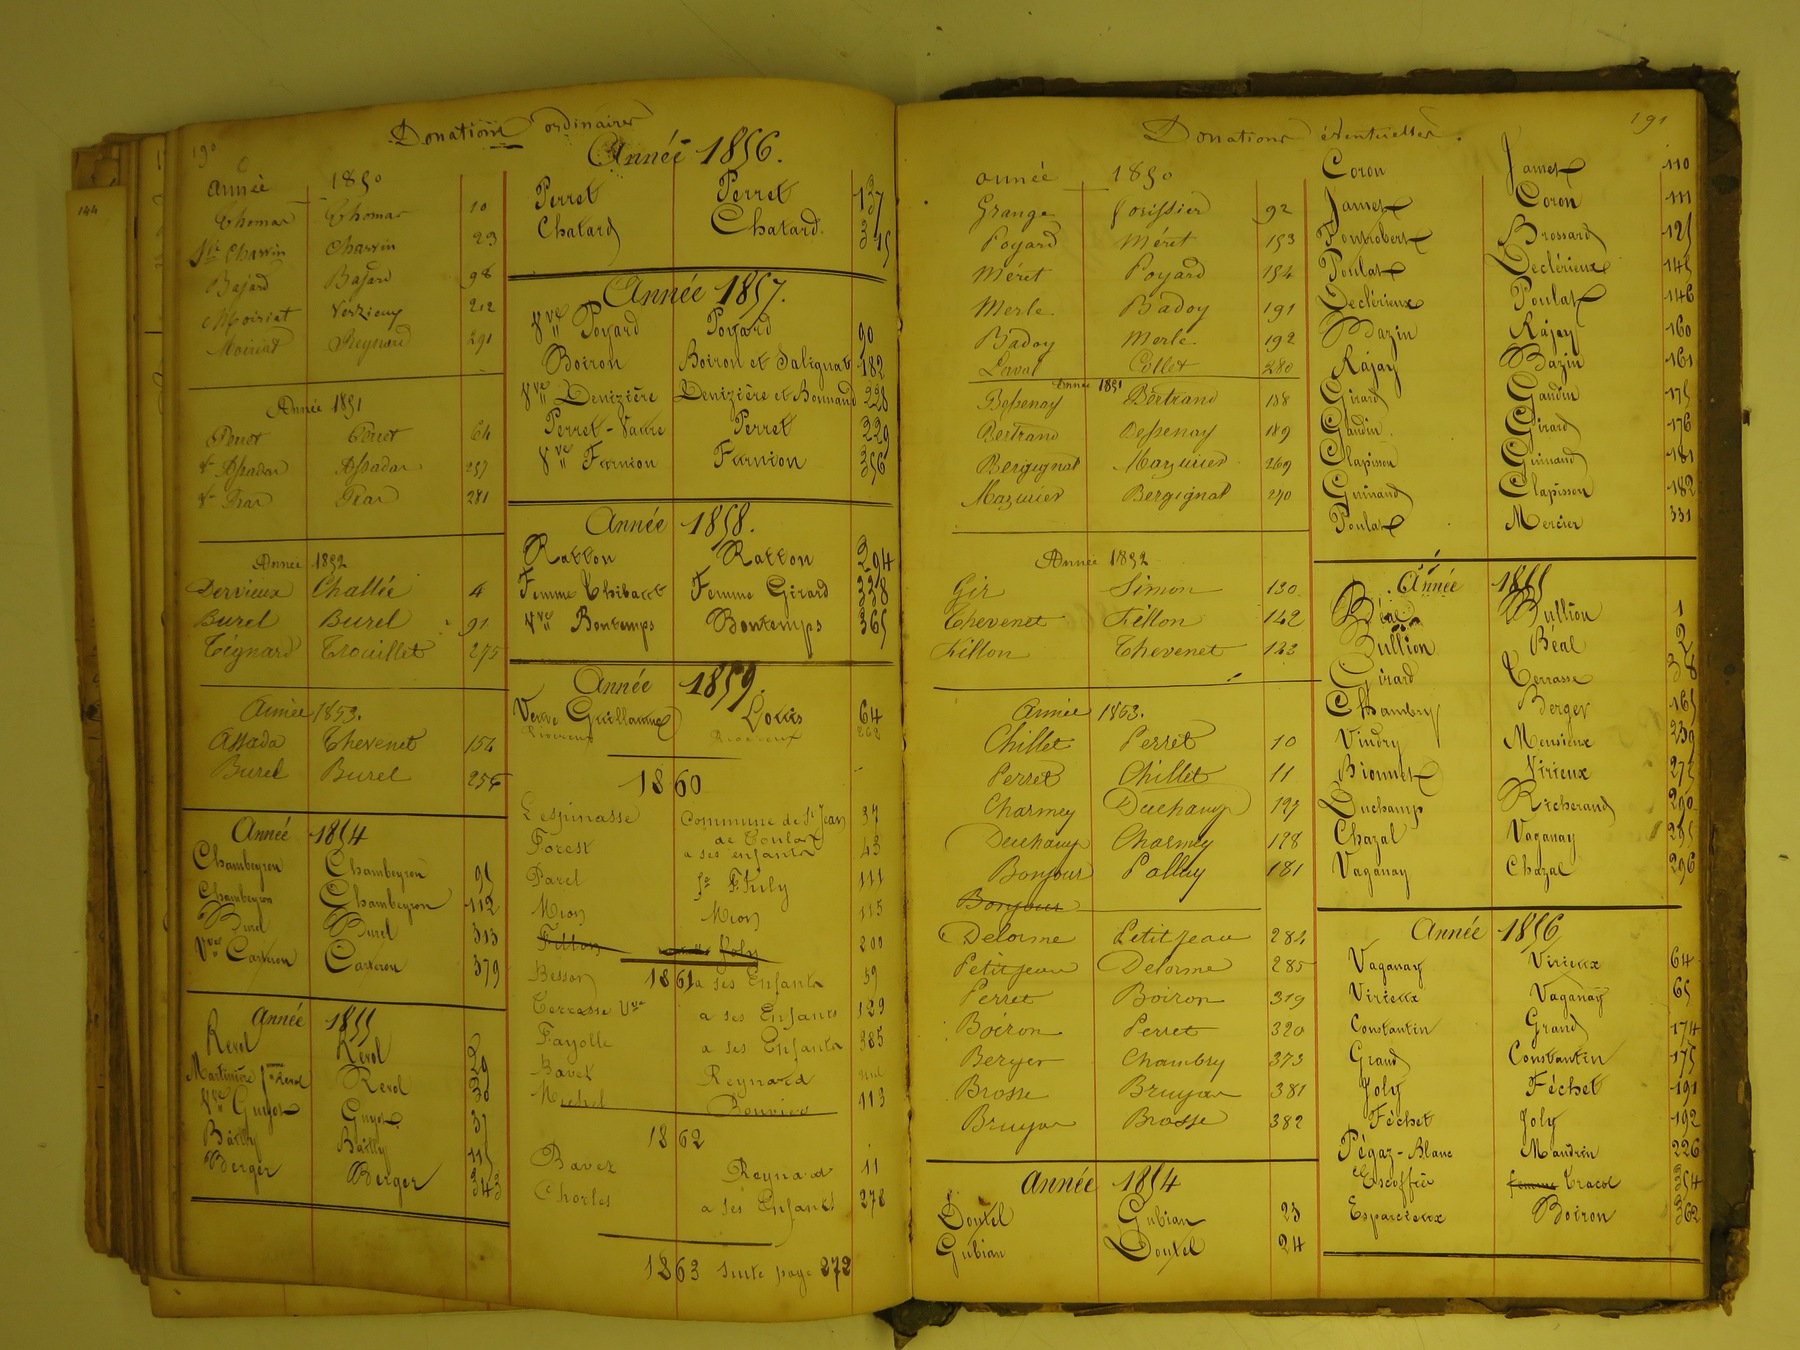 144
190
Donations ordinaires
année 1850
Thomas Thomas 10
Charvin Charvin 23
Bajard Bajard 98
Moiriat Verzieux 212
Moiriat Reynard 291
Année 1851
Perret Perret 64
Assadas Assadas 257
Frar Frar 281
Année 1852
Dervieux Challée 4
Burel Burel 91
Teignard Trouillet 275
Année 1853.
Assada Thevenet 154
Burel Burel 256
Année 1854
Chambeyron Chambeyron 91
Chambeyron Chambeyron 112
Burel Burel 313
Vve Carteron Carteron 379
Année 1855
Revol Revol 29
Martinière fme Revol Revol 30
Vve Guyot Guyot 37
Bailly Bailly 115
Berger Berger 343
Année 1856.
Perret Perret 137
Chatard Chatard. 375
Année 1857.
Vve Poyard Poyard 90
Boiron Boiron et Salignat 182
Vve Denizière Denizière et Bonnand 228
Perret-Vavre Perret 229
Vve Furnion Furnion 356
Année 1858.
Ratton Ratton 294
Femme Thibaut Femme Girard 338
Vve Bontemps Bontemps 365
Année 1859.
Veuve Guillaume Louis 64
262
1860
Lespinasse Commune de St Jean 37
de Toulas
Forest a ses enfants 43
Parel 111
Mion Mion 115
Fillon Joly 200
1861
Besson a ses Enfants 59
Terrasse Vve a ses Enfants 129
Fayolle a ses Enfants 385
Bavet Reynard nul
Michel Bouvier 113
1862
Bavez Reynard 11
Charles a ses Enfants 278
1863 Suite page 272
Donations éventuelles.
191
année 1850
Grange Forissier 92
Poyard Méret 153
Méret Poyard 154
Merle Badoy 191
Badoy Merle 192
Laval Collet 280
Année 1851
Bessenay Bertrand 188
Bertrand Bessenay 189
Bergignat Mazurier 269
Mazurier Bergignat 270
Année 1852
Gir Simon 130
Thevenet Fillon 142
Fillon Thevenet 143
Année 1853.
Chillet Perret 10
Perret Chillet 11
Charmey Duchamp 127
Duchamp Charmey 128
Bonjour Pallay 181
Bonjour
Delorme Petitjean 284
Petitjean Delorme 285
Perret Boiron 319
Boiron Perret 320
Berger Chambry 373
Brosse Bruyas 381
Bruyas Brosse 382
Année 1854
Doutel Gubian 23
Gubian Doutel 24
Coron Jamet 110
Jamet Coron 111
Pontrobert Brossard 125
Poulat Leclérieux 145
Leclérieux Poulat 146
Bazin Rajay 160
Rajay Bazin 161
Girard Gaudin 175
Gaudin Girard 176
Clapisson Guinand 181
Guinand Clapisson 182
Poulat Mercier 331
Année 1855
Béal Bullion 1
Bullion Béal 2
Girard Terrasse 38
Chambry Berger 165
Vindry Mensieux 239
Bionnet Virieux 275
Duchamp Richerand 290
Chazal Vaganay 295
Vaganay Chazal 296
Année 1856
Vaganay Virieux 64
Virieux Vaganay 65
Constantin Grand 174
Grand Constantin 175
Joly Féchet 191
Féchet Joly 192
Pégaz-Blanc Mandrin 226
Escoffié femme Tracol 354
Esparcieux Boiron 362